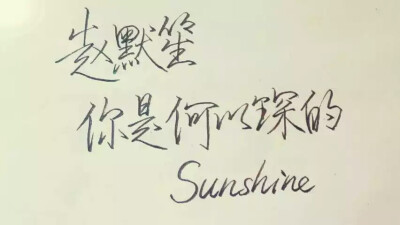 赵默笙
你是何以琛的
Sunshine